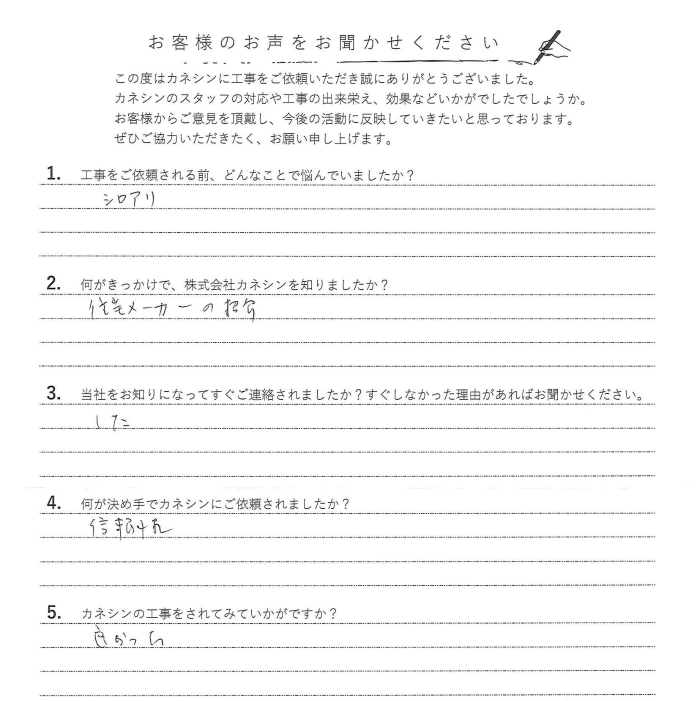 お客様のお声をお聞かせください
この度はカネシンに工事をご依頼いただき誠にありがとうございました。
カネシンのスタッフの対応や工事の出来栄え、効果などいかがでしたでしょうか。
お客様からご意見を頂戴し、今後の活動に反映していきたいと思っております。
ぜひご協力いただきたく、お願い申し上げます。
1. 工事をご依頼される前、どんなことで悩んでいましたか？
シロアリ
2. 何がきっかけで、株式会社カネシンを知りましたか？
住宅メーカーの紹介
3. 当社をお知りになってすぐご連絡されましたか？すぐしなかった理由があればお聞かせください。
した
4. 何が決め手でカネシンにご依頼されましたか？
5. カネシンの工事をされてみていかがですか？
良かった